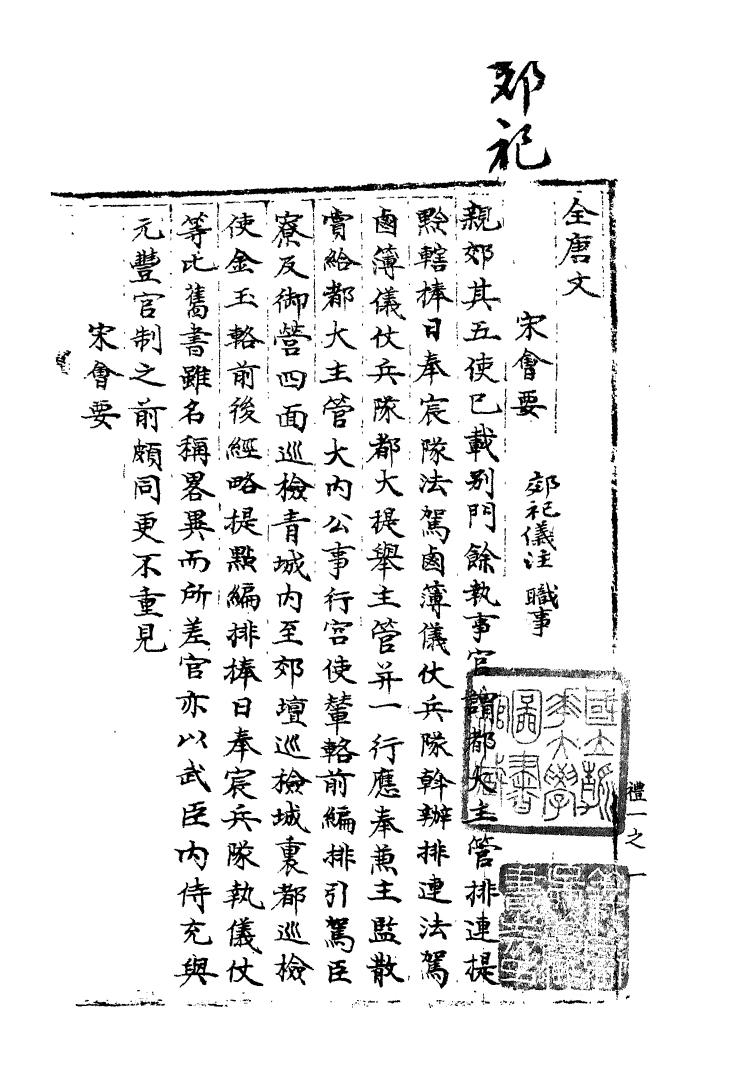 郊祀
全唐文
宋會要
郊祀儀注 職事
親郊其五使已載别門餘執事官謂都大主管排連提
㸃轄捧日奉宸隊法駕鹵簿儀仗兵隊斡辦排連法駕
鹵簿儀仗兵隊都大提舉主管并一行應奉兼主監散
賞給都大主管大内公事行宫使輦輅前編排引駕臣
寮及御營四面巡檢青城内至郊壇巡檢城裏都巡檢
使金玉輅前後經略提點編排捧日奉宸兵隊執儀仗
等比舊書雖名稱畧異而所差官亦以武臣内侍充與
元豐官制之前頗同更不重見
宋會要
禮一之一
國立
華大學
圖書